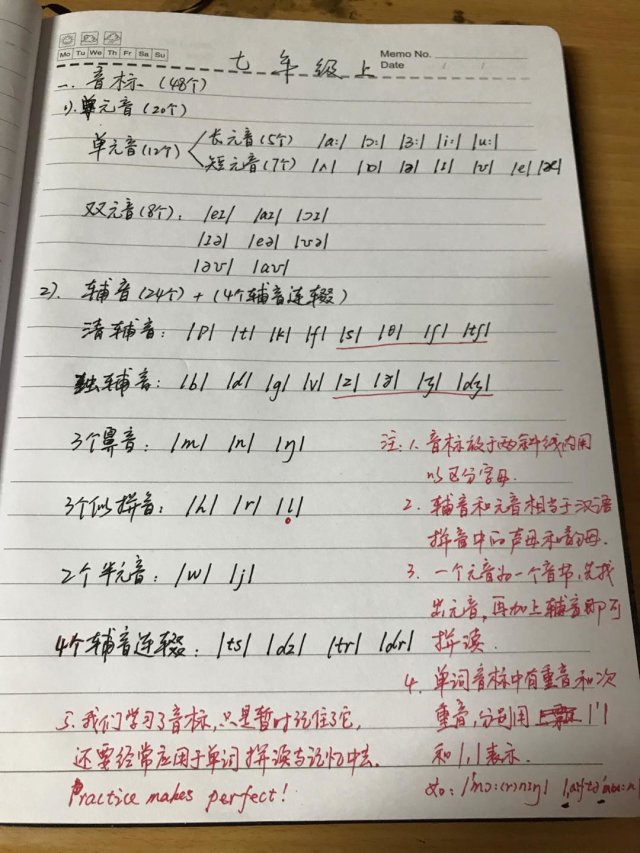 Mo Tu We Th Fr Sa Su
Memo No.
Date / /
七年级上
一. 音标 (48个)
1). 单元音 (20个)
单元音(12个)
长元音(5个) /ɑ:/ /ɔ:/ /ɜ:/ /i:/ /u:/
短元音(7个) /ʌ/ /ɒ/ /ə/ /ɪ/ /ʊ/ /e/ /æ/
双元音(8个): /eɪ/ /aɪ/ /ɔɪ/
/ɪə/ /eə/ /ʊə/
/əʊ/ /aʊ/
2). 辅音(24个) + (4个辅音连辍)
清辅音: /p/ /t/ /k/ /f/ /s/ /θ/ /ʃ/ /tʃ/
独辅音: /b/ /d/ /g/ /v/ /z/ /ð/ /ʒ/ /dʒ/
3个鼻音: /m/ /n/ /ŋ/
3个似拼音: /h/ /r/ /l/
2个半元音: /w/ /j/
4个辅音连辍: /ts/ /dz/ /tr/ /dr/
注: 1. 音标放于两条斜线内用
以区分字母.
2. 辅音和元音相当于汉语
拼音中的声母和韵母.
3. 一个元音为一个音节, 先找
出元音, 再加上辅音即可
拼读.
4. 单词音标中有重音和次
重音, 分别用 /'/
和 /ˌ/ 表示.
如: /'mɔ:(r)nɪŋ/
5. 我们学习了音标, 只是暂时记住了它,
还要经常应用于单词拼读与记忆中去.
Practice makes perfect!